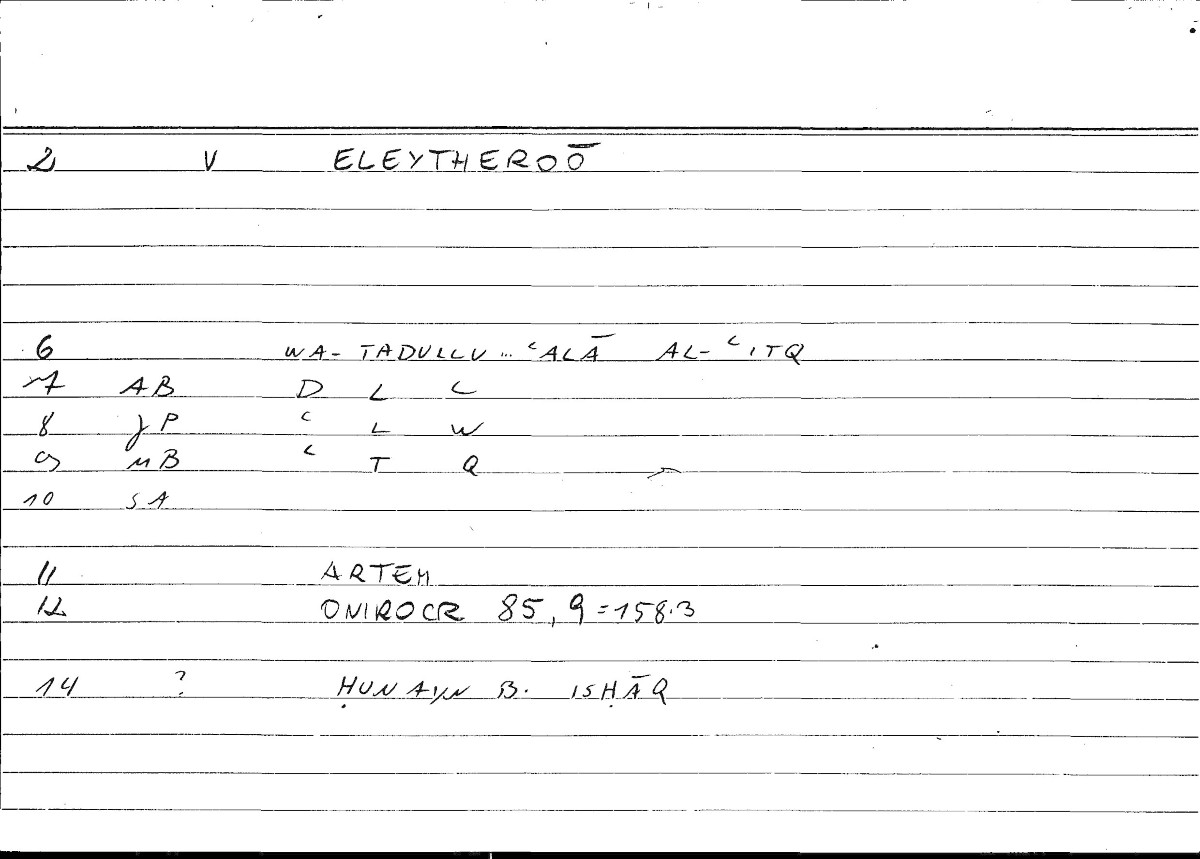 2 V ELEYTHEROŌ
6 WA- TADULLU ... ʿALĀ AL-ʿITQ
7 AB D L L
8 JP ʿ L W
9 MB ʿ T Q
10 SA
11 ARTEM
12 ONIROCR 85, 9 = 158.3
14 ? ḤUNAYN B. ISḤĀQ